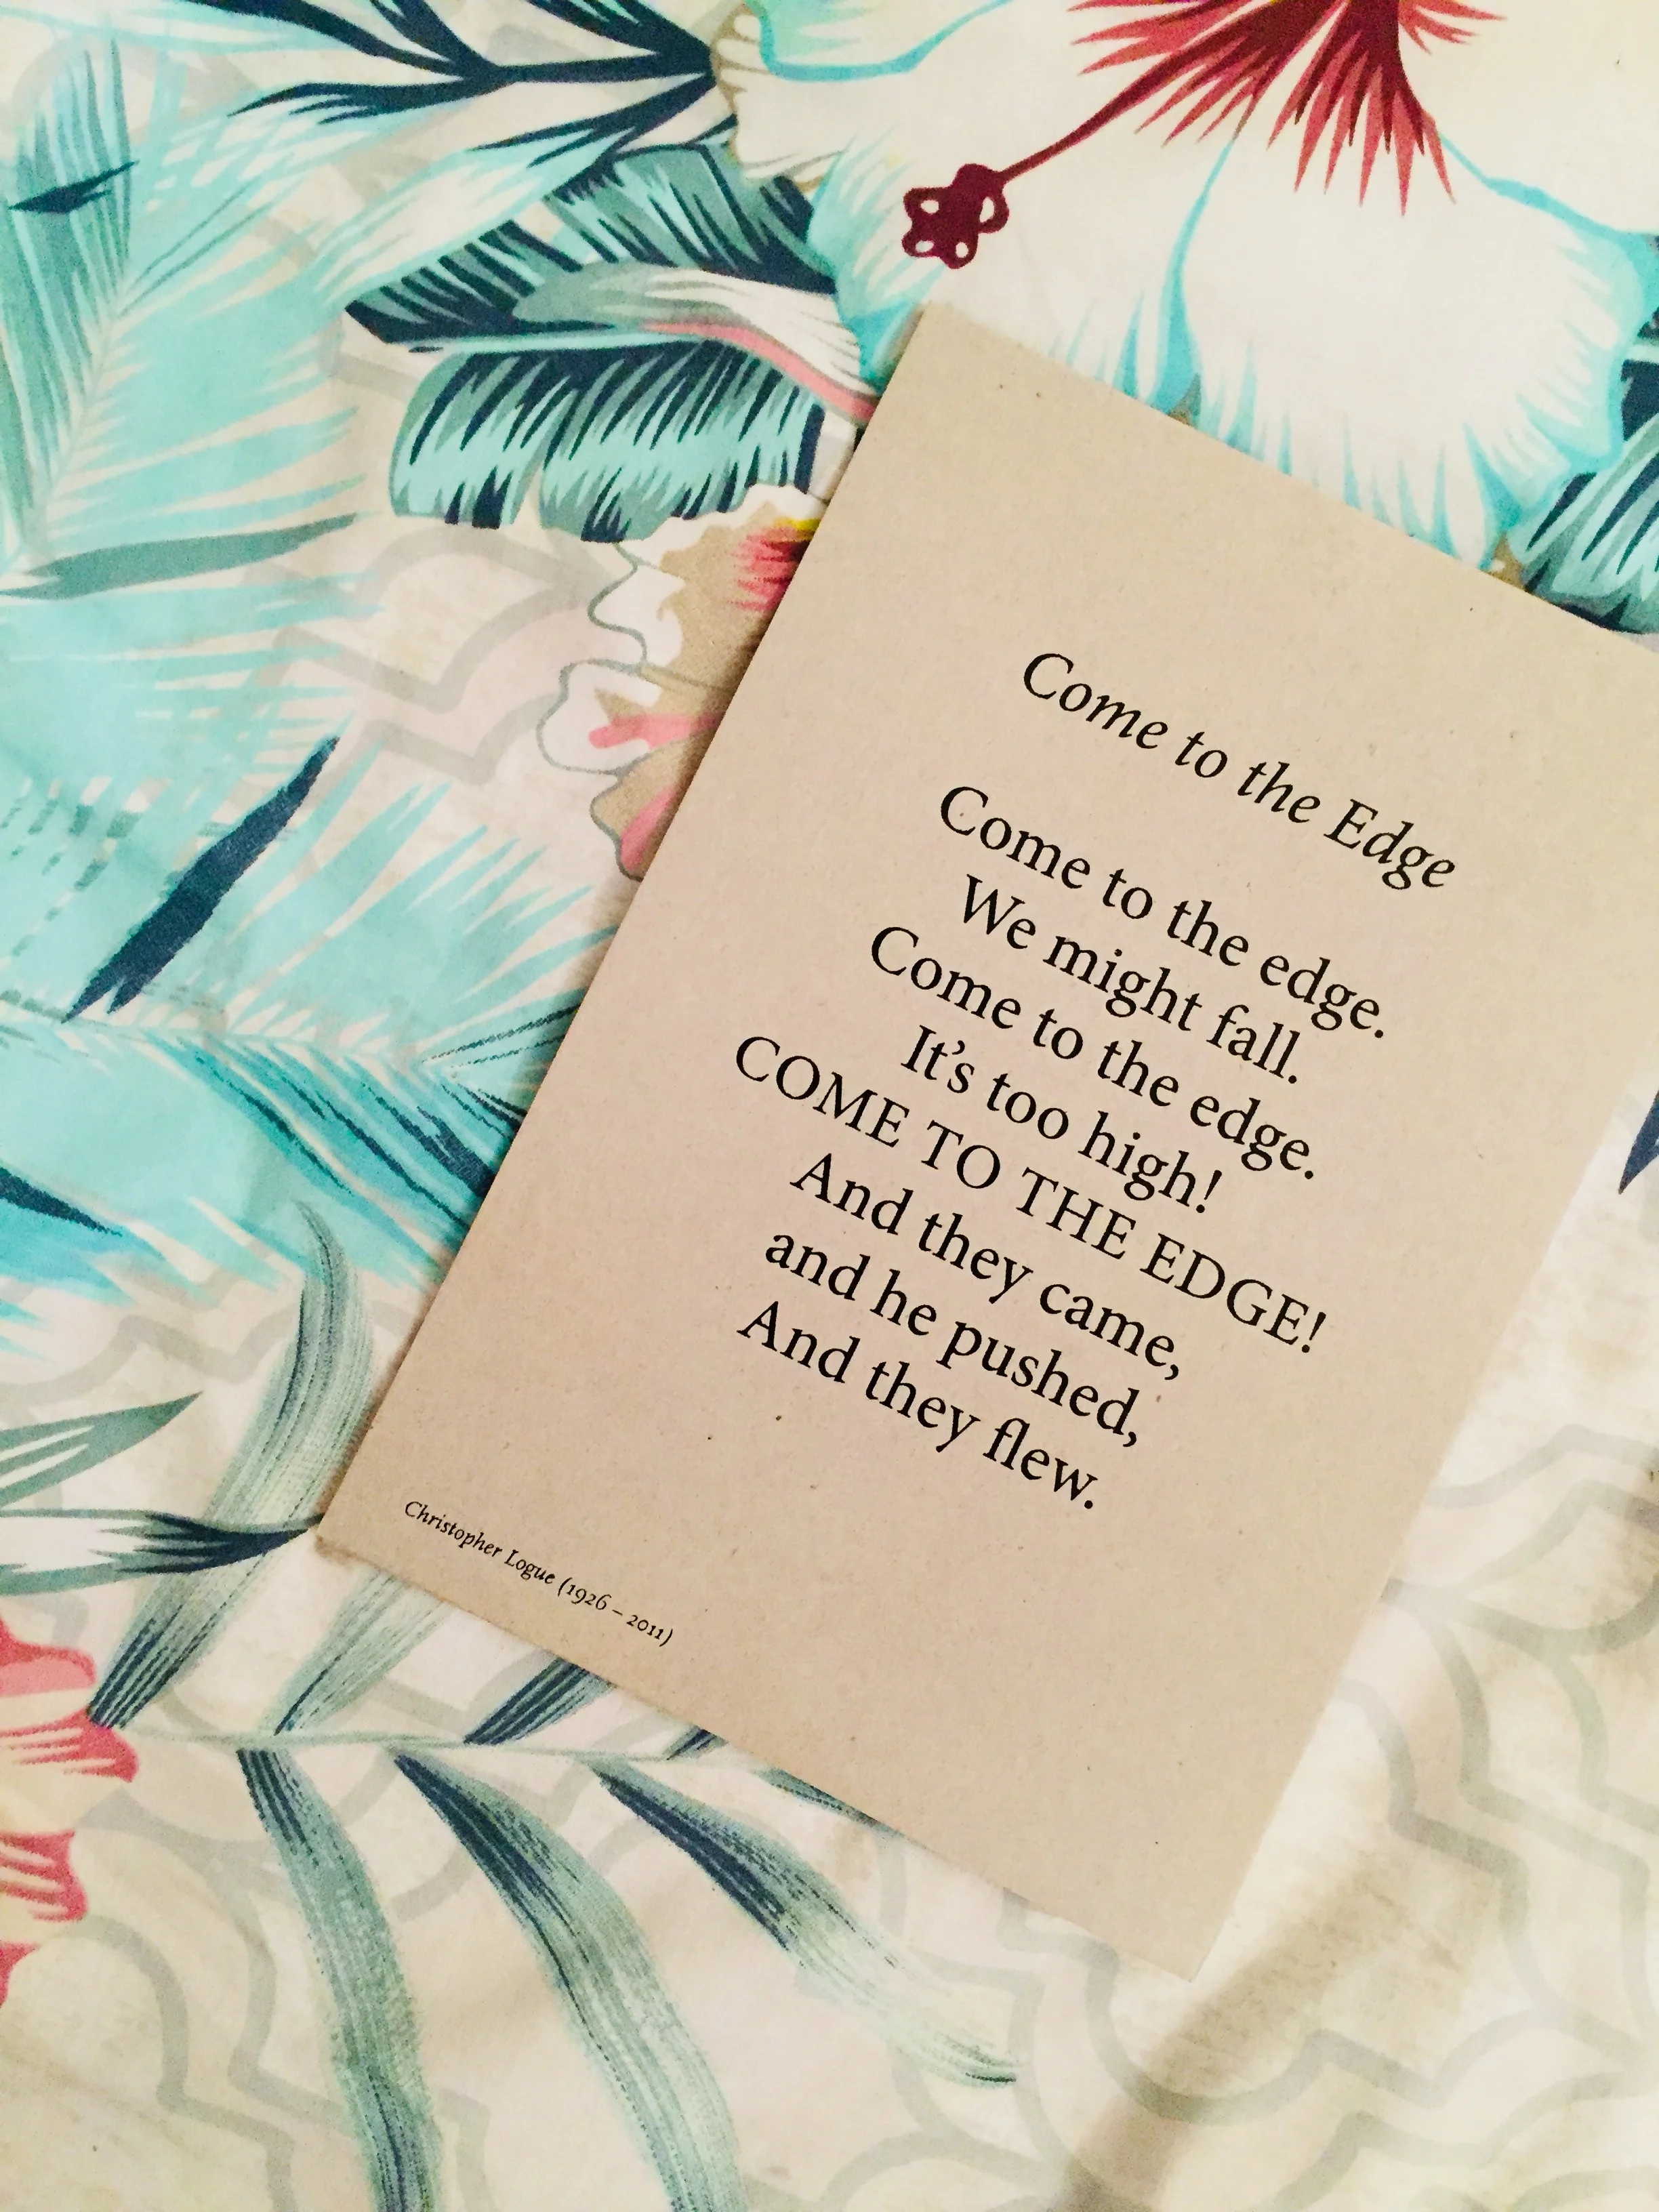 Come to the Edge
Come to the edge.
We might fall.
Come to the edge.
It's too high!
COME TO THE EDGE!
And they came,
and he pushed,
And they flew.
Christopher Logue (1926 – 2011)